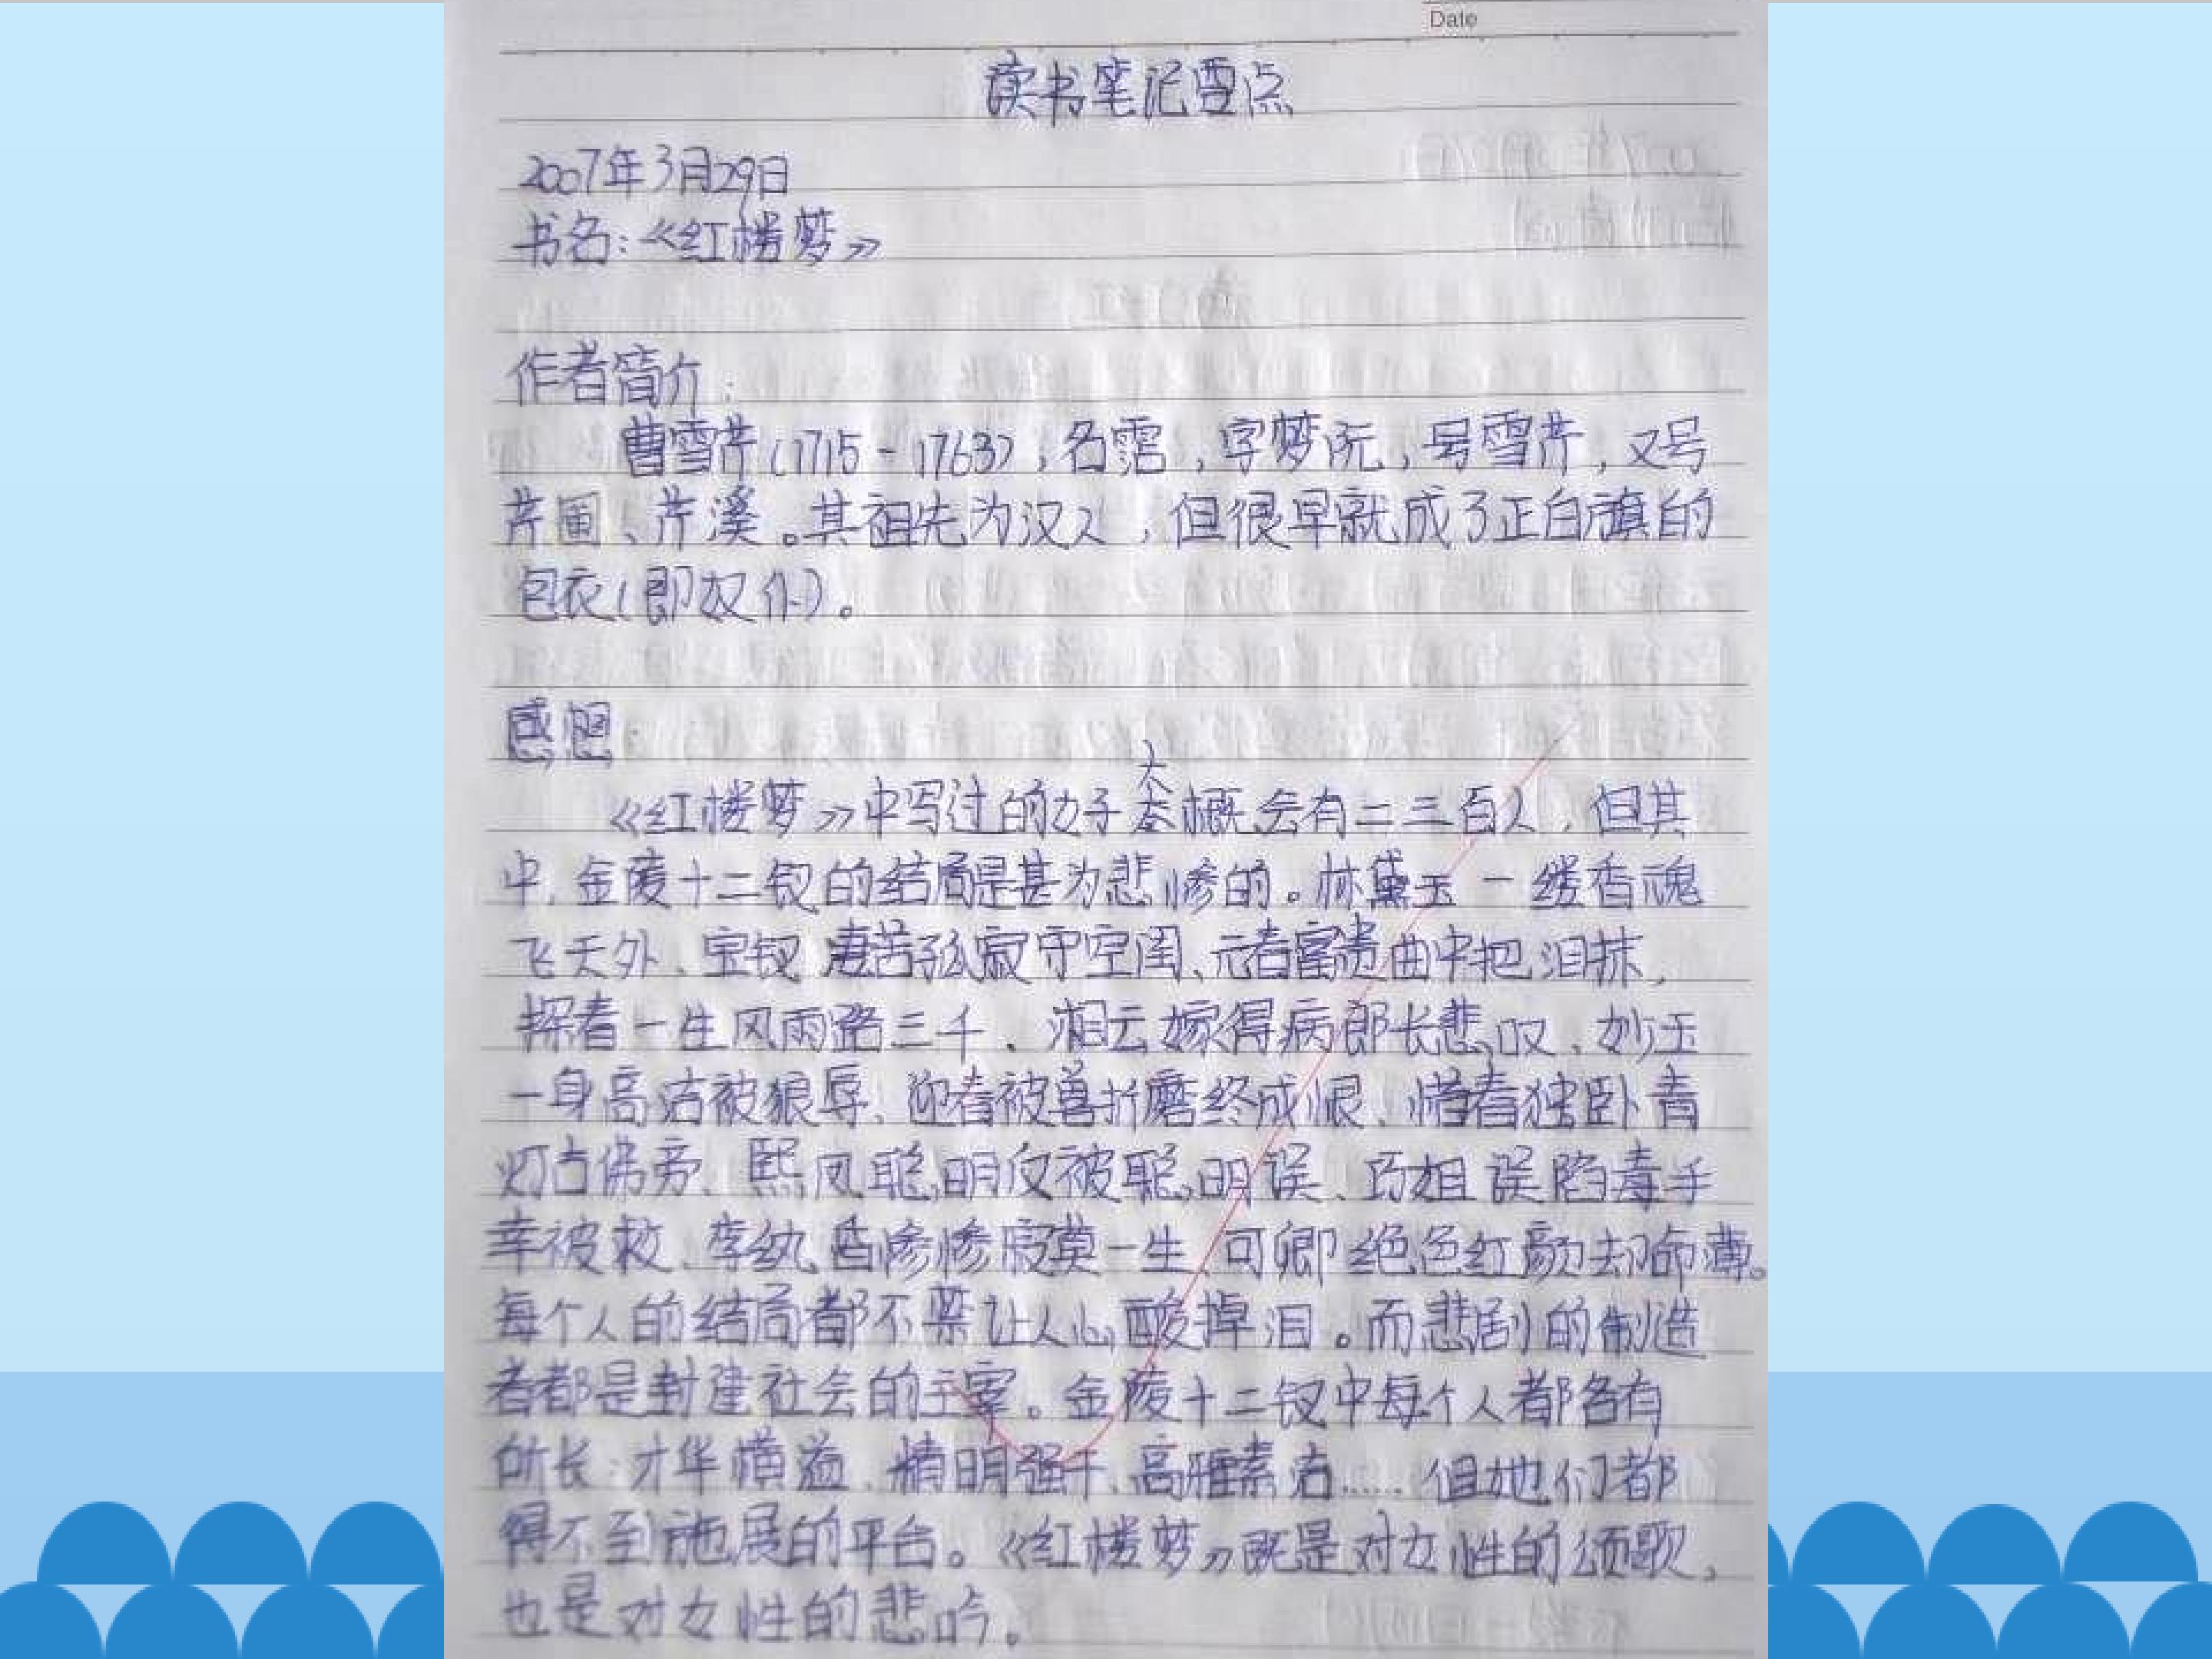 Date
读书笔记要点
2007年3月29日
书名:《红楼梦》
作者简介:
曹雪芹(1715-1763),名霑,字梦阮,号雪芹,又号
芹圃、芹溪。其祖先为汉人,但很早就成了正白旗的
包衣(即奴仆)。
感想:
大
《红楼梦》中写过的女子太概会有二三百人,但其
中,金陵十二钗的结局是甚为悲惨的。林黛玉一缕香魂
飞天外、宝钗凄苦孤寂守空闺、元春富贵曲中把泪抹、
探春一生风雨路三千、湘云嫁得病郎长悲叹、妙玉
一身高洁被狼辱、迎春被兽折磨终成恨、惜春独卧青
灯古佛旁、熙凤聪明反被聪明误、巧姐误陷毒手
幸被救、李纨昏惨惨寂寞一生、可卿绝色红颜却命薄。
每个人的结局都不禁让人心酸掉泪。而悲剧的制造
者都是封建社会的主宰。金陵十二钗中每个人都各有
所长:才华横溢、精明强干、高雅素洁……但她们都
得不到施展的平台。《红楼梦》既是对女性的颂歌,
也是对女性的悲吟。